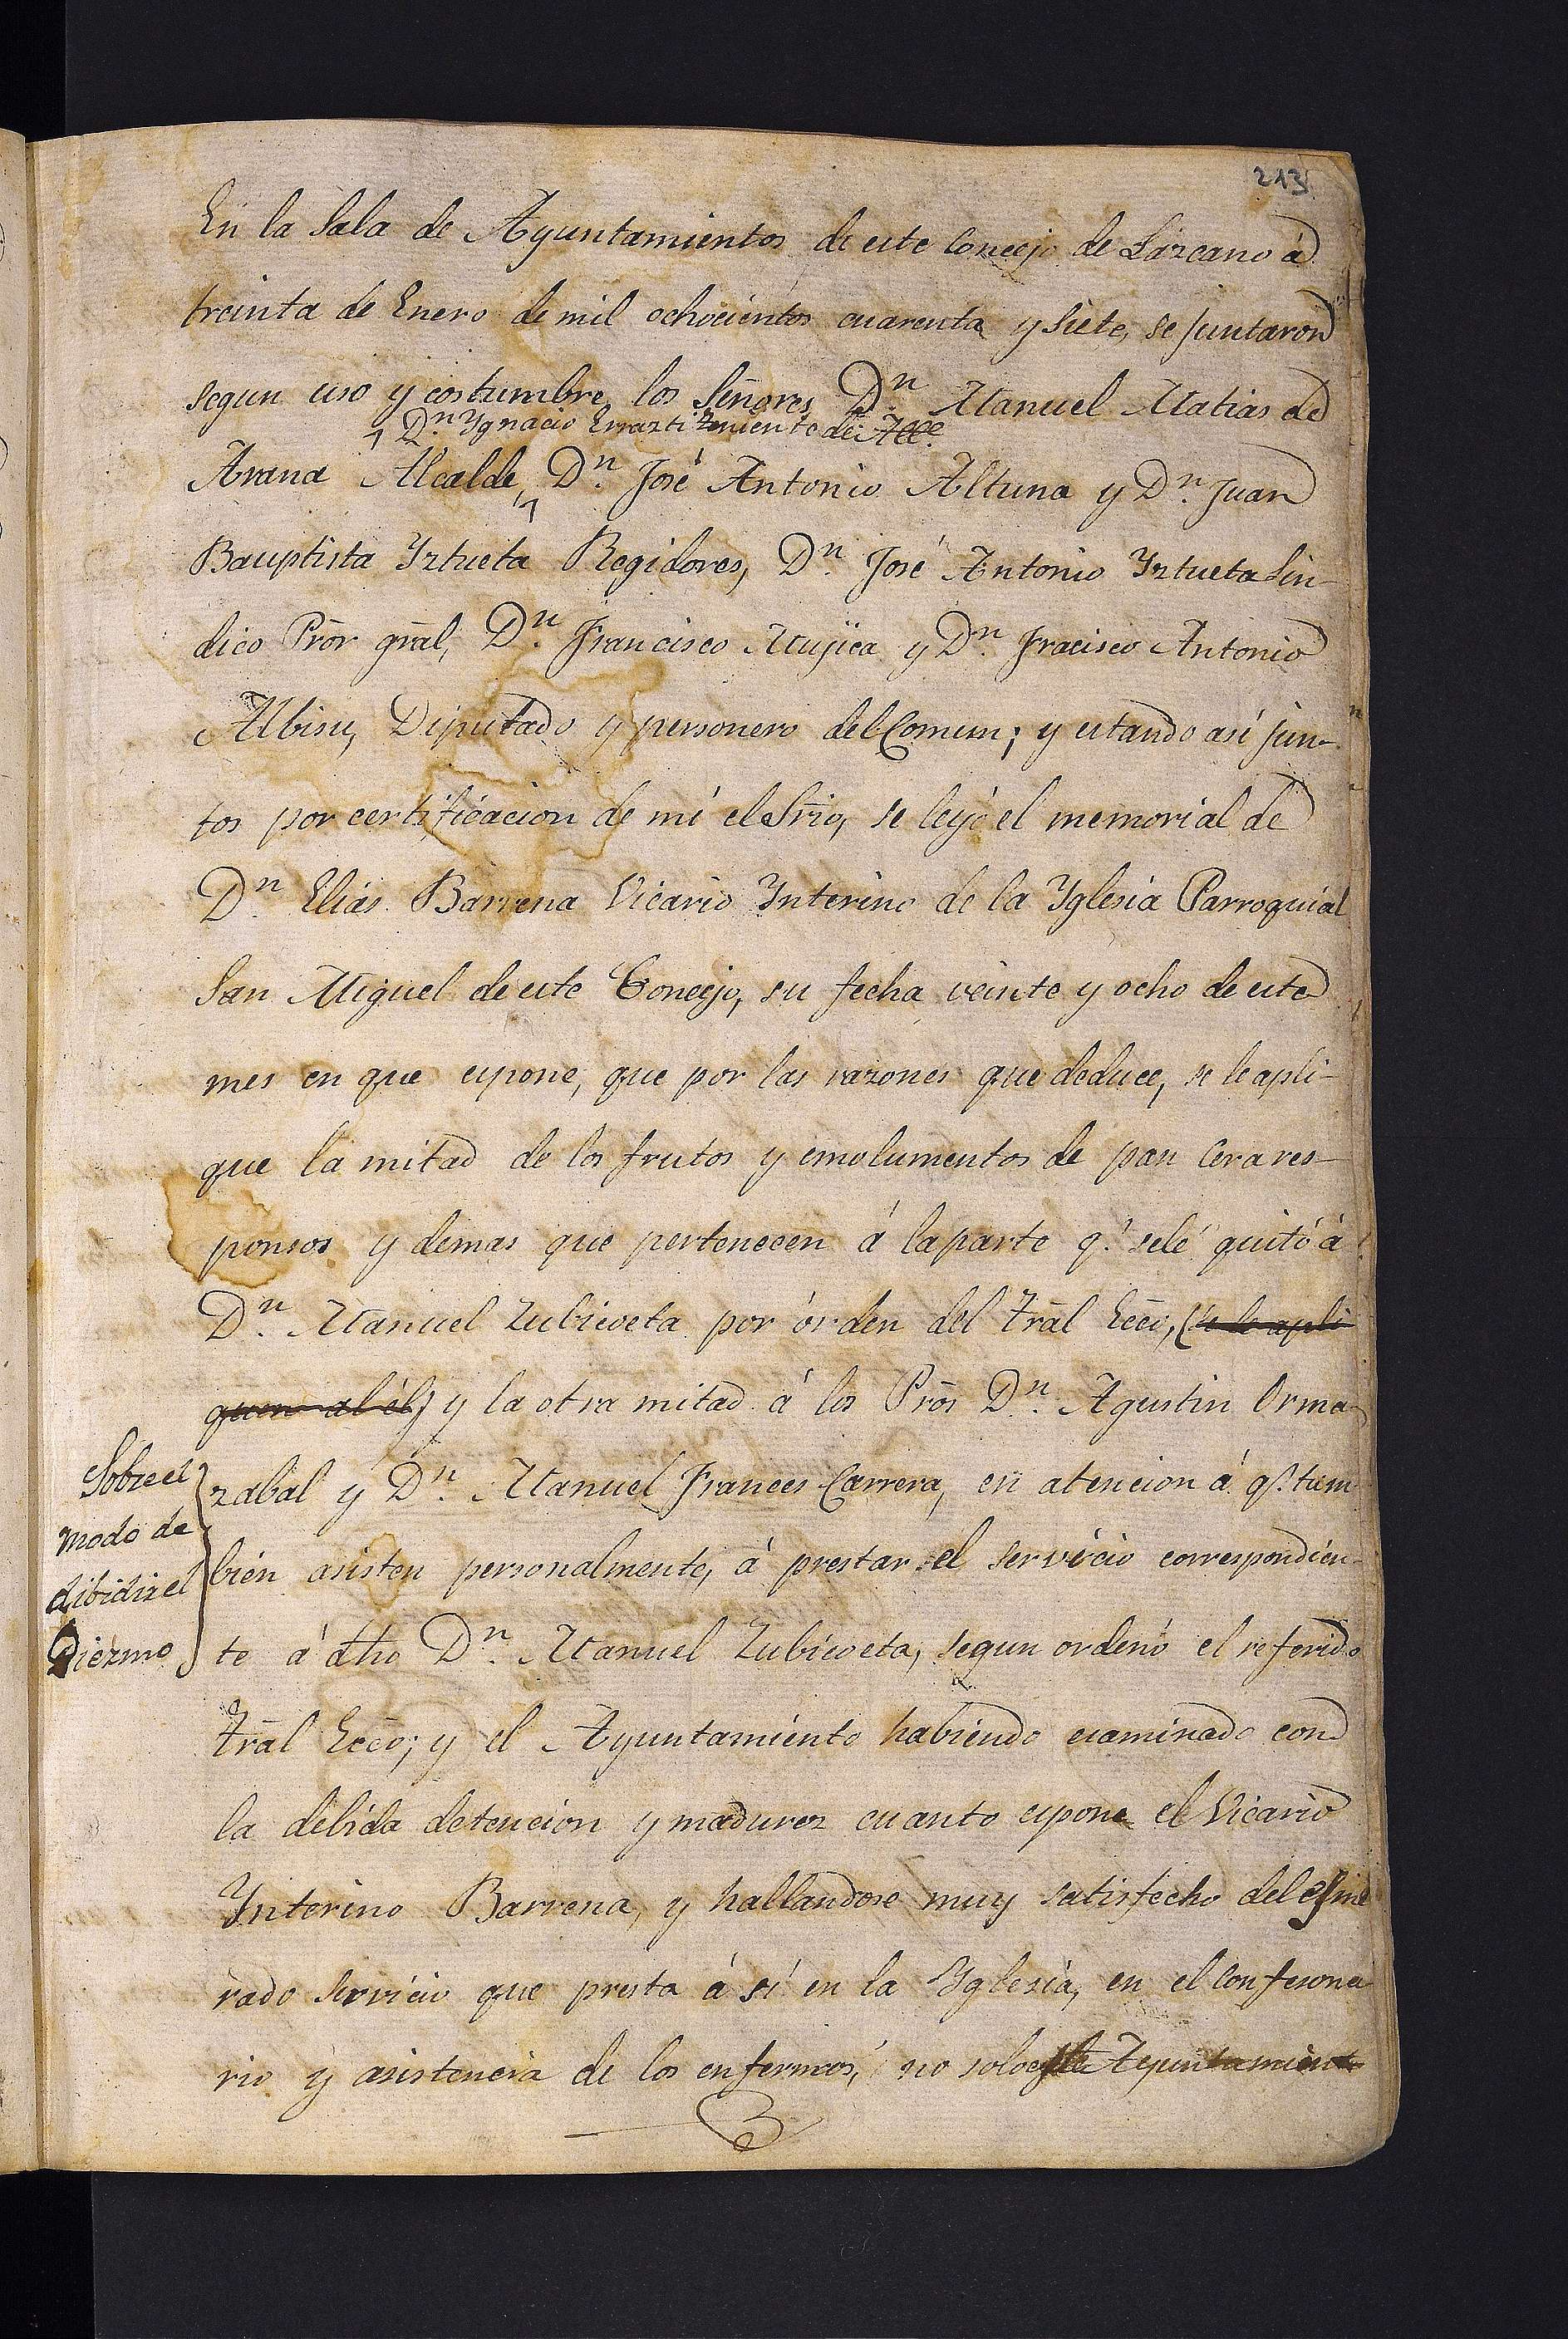 213
En la Sala de Ayuntamientos de este Concejo de Lazcano á
treinta de Enero de mil ochocientos cuarenta y siete, se juntaron
segun uso y costumbre los Señores Dn. Manuel Matias de
Dn. Ygnacio Errazti teniente de Alle.
Arana Alcalde, Dn. José Antonio Altuna y Dn. Juan
Bauptista Yztueta Regidores, Dn. José Antonio Yztueta Sin-
dico Prõr grãl, Dn. Francisco Mujica y Dn. Fracisco Antonio
Albisu, Diputado y personero del Comun; y estando asi jun-
tos por certificacion de mi el Srĩo, se leyó el memorial de
Dn. Elias Barrena Vicario Ynterino de la Yglesia Parroquial
San Miguel de este Concejo, su fecha veinte y ocho de este
mes en que expone, que por las razones que deduce, se le apli-
que la mitad de los frutos y emolumentos de pan cera res-
ponsos y demas que pertenecen á la parte q.e se le quitó á
Dn. Manuel Zubicoeta por órden del Trãl Ecc̃o, (se le apli
quen al él) y la otra mitad á los Prõs Dn. Agustin Orma-
zabal y Dn. Manuel Frances Carrera, en atencion á q.e tam-
bien asisten personalmente, á prestar el servicio correspondien-
te á dho Dn. Manuel Zubicoeta, segun ordenó el referido
Trãl Ecc̃o; y el Ayuntamiento habiendo examinado con
la debida detencion y madurez cuanto expone el Vicario
Ynterino Barrena, y hallandose muy satisfecho del esme
rado servicio que presta á sí en la Yglesia, en el Confesona-
rio y asistencia de los enfermos, no solo este Ayuntamiento
Sobre el
modo de
dibidir el
Diezmo